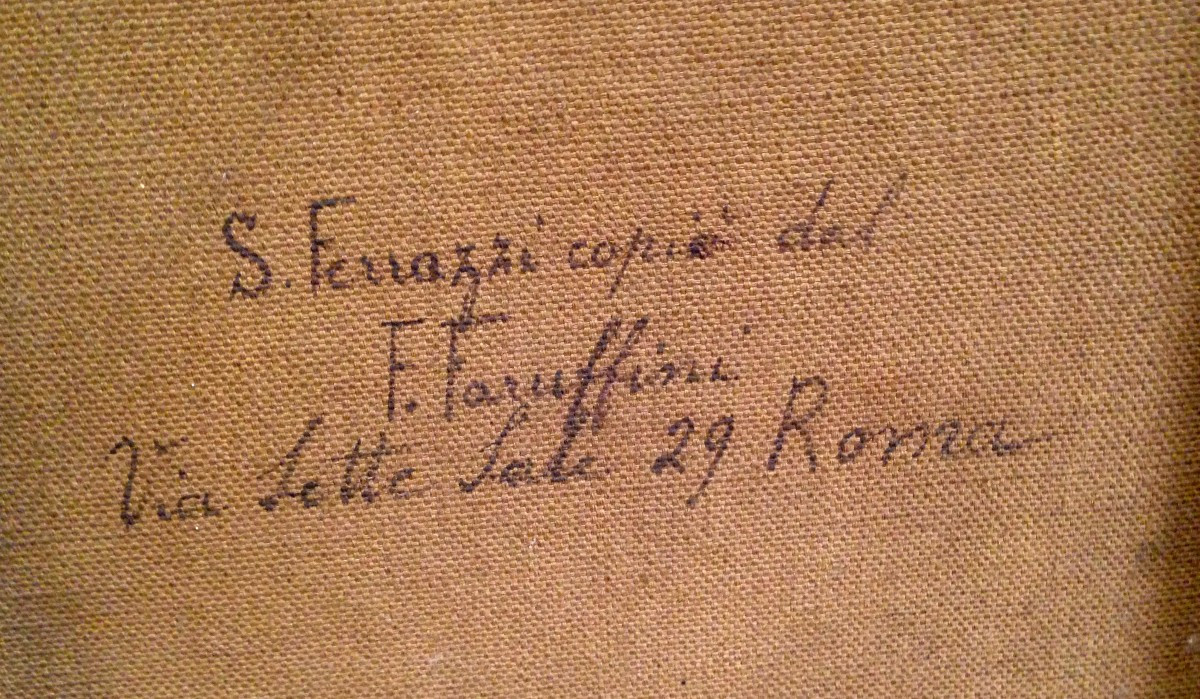 S. Ferrazzi copiò dal
F. Faruffini
Via Sette Sale 29 Roma